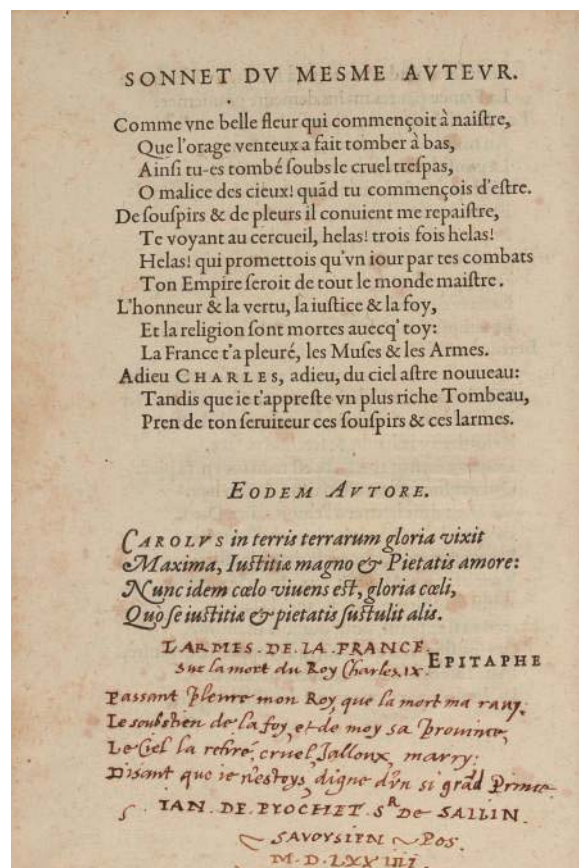 SONNET DV MESME AVTEVR.
Comme vne belle fleur qui commençoit à naiſtre,
Que l'orage venteux a fait tomber à bas,
Ainſi tu-es tombé ſoubs le cruel treſpas,
O malice des cieux! quãd tu commençois d'eſtre.
De ſouſpirs & de pleurs il conuient me repaiſtre,
Te voyant au cercueil, helas! trois fois helas!
Helas! qui promettois qu'vn iour par tes combats
Ton Empire ſeroit de tout le monde maiſtre.
L'honneur & la vertu, la iuſtice & la foy,
Et la religion ſont mortes auecq' toy:
La France t'a pleuré, les Muſes & les Armes.
Adieu CHARLES, adieu, du ciel aſtre nouueau:
Tandis que ie t'appreſte vn plus riche Tombeau,
Pren de ton ſeruiteur ces ſouſpirs & ces larmes.
EODEM AVTORE.
CAROLVS in terris terrarum gloria vixit
Maxima, Iuſtitiæ magno & Pietatis amore:
Nunc idem cœlo viuens eſt, gloria cœli,
Quo ſe iuſtitiæ & pietatis ſuſtulit alis.
LARMES. DE. LA. FRANCE.
Sur la mort du Roy Charles. IX.
EPITAPHE
Passant pleure mon Roy, que la mort ma rauy.
Le soubstien de la foy, et de moy sa prouince,
Le Ciel la retiré, cruel, Jalloux, marry:
Disant que ie n'estoys, digne d'vn si grãd Prince.
IAN. DE. PIOCHET. Sr DE SALLIN.
SAVOYSIEN Pos.
M. D. LXXIIII.